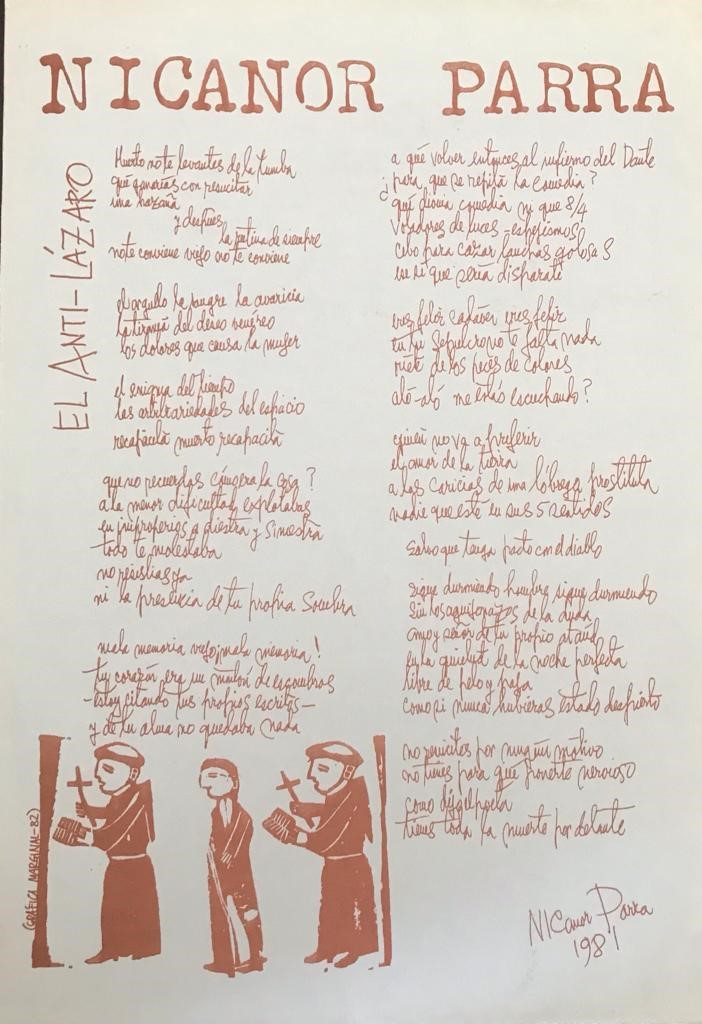 NICANOR PARRA
EL ANTI-LÁZARO
Muerto no te levantes de la tumba
qué ganarías con resucitar
una hazaña
y después
la rutina de siempre
no te conviene viejo no te conviene
el orgullo la sangre la avaricia
la tiranía del deseo venéreo
los dolores que causa la mujer
el enigma del tiempo
las arbitrariedades del espacio
recapacita muerto recapacita
que no recuerdas cómo era la cosa?
a la menor dificultad explotabas
en improperios a diestra y siniestra
todo te molestaba
no resistías ya
ni la presencia de tu propia sombra
mala memoria viejo, mala memoria!
tu corazón era un montón de escombros
-estoy citando tus propios escritos-
y de tu alma no quedaba nada
a qué volver entonces al infierno del Dante
¿para que se repita la comedia?
qué divina comedia ni que 8/4
voladores de luces - espejismos
cebo para cazar lauchas golosas
ese sí que sería disparate
eres feliz cadáver eres feliz
en tu sepulcro no te falta nada
ríete de los peces de colores
aló-aló me estás escuchando?
quién no va a preferir
el amor de la tierra
a las caricias de una lóbrega prostituta
nadie que esté en sus 5 sentidos
salvo que tenga pacto con el diablo
sigue durmiendo hombre sigue durmiendo
sin los aguijonazos de la duda
amo y señor de tu propio ataúd
en la quietud de la noche perfecta
libre de pelo y paja
como si nunca hubieras estado despierto
no resucites por ningún motivo
no tienes para qué ponerte nervioso
como dijo el poeta
tienes toda la muerte por delante
NICanor Parra
1981
(GRÁFICA MARGINAL-82)